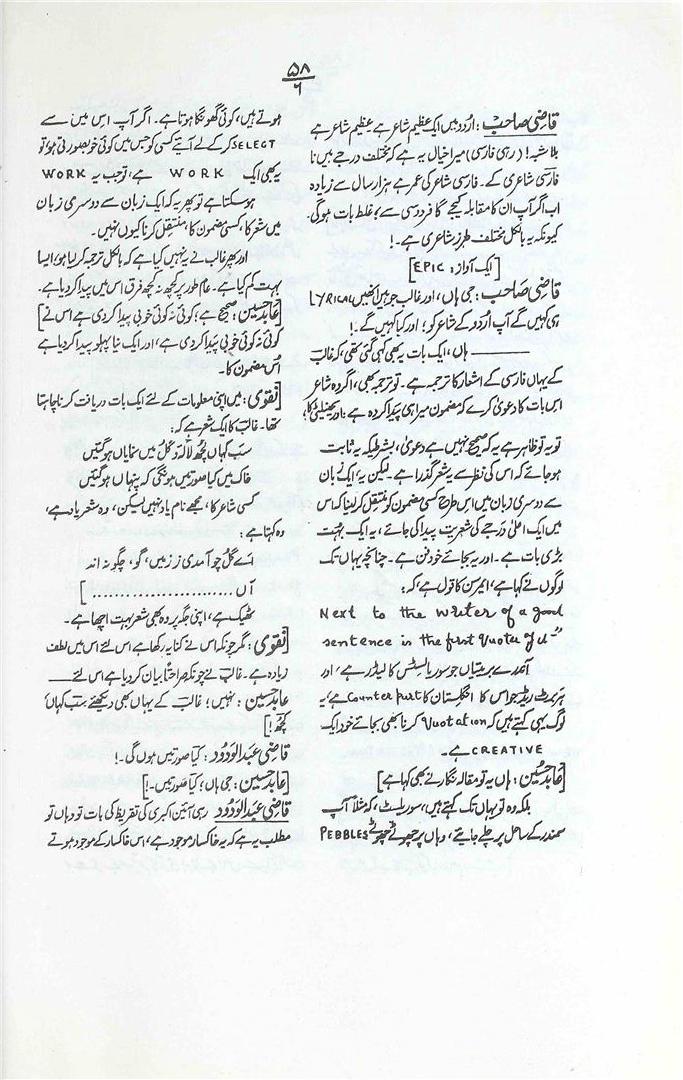 ۵۸
۶
قاضی صاحب: اُردو میں ایک عظیم شاعر ہے عظیم شاعر ہے
بلا شبہ! (رہی فارسی) میرا خیال یہ ہے کہ مختلف درجے ہیں نا
فارسی شاعری کے۔ فارسی شاعر کی عمر ہے ہزار سال سے زیادہ
اب اگر آپ ان کا مقابلہ کیجیے گا فردوسی سے؛ غلط بات ہوگی
کیونکہ یہ بالکل مختلف طرز شاعری ہے۔!
[ایک آواز: EPIC]
قاضی صاحب: جی ہاں، اور غالب جو ہیں انھیں LYRICAL
ہی کہیں گے آپ اُردو کے شاعر کو؛ اور کیا کہیں گے۔!
ہاں، ایک بات یہ بھی کہی گئی تھی کہ غالب
کے یہاں فارسی کے اشعار کا ترجمہ ہے۔ تو ترجمہ بھی، اگر وہ شاعر
اس بات کا دعویٰ کرے کہ مضمون میرا ہی پیدا کردہ ہے؛ اوریجنیلیٹی کا،
تو یہ تو ظاہر ہے کہ صحیح نہیں ہے دعویٰ، بشرطیکہ یہ ثابت
ہو جائے کہ اس کی نظر سے یہ شعر گذرا ہے۔ لیکن یہ؛ ایک زبان
سے دوسری زبان میں اس طرح کسی مضمون کو منتقل کر لینا کہ اس
میں ایک اعلیٰ درجے کی شعریت پیدا کی جائے، یہ ایک بہت
بڑی بات ہے۔ اور یہ بجائے خود فن ہے۔ چنانچہ یہاں تک
لوگوں نے کہا ہے، ایمرسن کا قول ہے، کہ:
Next to the writer of a good
sentence is the first Quoter of it"
آندرے بریتیاں جو سور یالسٹس کا لیڈر ہے؛ اور
ہربرٹ ریڈ جو اس کا انگلستان کا Counter part ہے؛ یہ
لوگ یہی کہتے ہیں کہ Quotation کرنا بھی بجائے خود ایک
CREATIVE ہے۔
[عابد حسین: ہاں یہ تو مقالہ نگار نے بھی کہا ہے]
بلکہ وہ تو یہاں تک کہتے ہیں، سوریلسٹ، کہ مثلاً آپ
سمندر کے ساحل پر چلے جائیے، وہاں پر چھوٹے چھوٹے PEBBLES
ہوتے ہیں، کوئی گھونگا ہوتا ہے۔ اگر آپ اس میں سے
SELECT کر کے لے آئیے کسی کو جس میں کوئی خوبصورتی ہو تو
یہ بھی ایک WORK ہے، تو جب یہ WORK
ہو سکتا ہے تو پھر یہ کہ ایک زبان سے دوسری زبان
میں شعر کا، کسی مضمون کا، منتقل کرنا کیوں نہیں۔
اور پھر غالب نے یہ نہیں کیا ہے کہ بالکل ترجمہ کر لیا ہو؛ ایسا
بہت کم کیا ہے۔ عام طور پر کچھ نہ کچھ فرق اس میں پیدا کر دیا ہے۔
[عابد حسین: صحیح ہے؛ کوئی نہ کوئی خوبی پیدا کر دی ہے اس نے]
کوئی نہ کوئی خوبی پیدا کر دی ہے، اور ایک نیا پہلو پیدا کر دیا ہے
اُس مضمون کا۔
[نقوی: میں اپنی معلومات کے لئے ایک بات دریافت کرنا چاہتا
تھا۔ غالب کا ایک شعر ہے کہ:
سب کہاں کچھ لالہ و گل میں نمایاں ہو گئیں
خاک میں کیا صورتیں ہونگی کہ پنہاں ہو گئیں
کسی شاعر کا، مجھے نام یاد نہیں لیکن، وہ شعر یاد ہے،
وہ کہتا ہے:
اے گل چو آمدی ز زمیں، گو، چگونہ اند
آں ........................]
ٹھیک ہے، اپنی جگہ پر وہ بھی شعر بہت اچھا ہے۔
[نقوی: مگر چونکہ اس نے کنایہ رکھا ہے اس لئے اس میں لطف
زیادہ ہے۔ غالب نے چونکہ صراحتاً بیان کر دیا ہے اس لئے
عابد حسین: نہیں؛ غالب کے یہاں بھی دیکھئے 'سب کہاں'
کچھ!]
قاضی عبدالودود: کیا صورتیں ہوں گی۔!
[عابد حسین: جی ہاں؛ کیا صورتیں۔!]
قاضی عبدالودود رہی آئین اکبری کی تقریظ کی بات تو وہاں تو
مطلب یہ ہے کہ یہ خاکسار موجود ہے، اس خاکسار کے موجود ہوتے